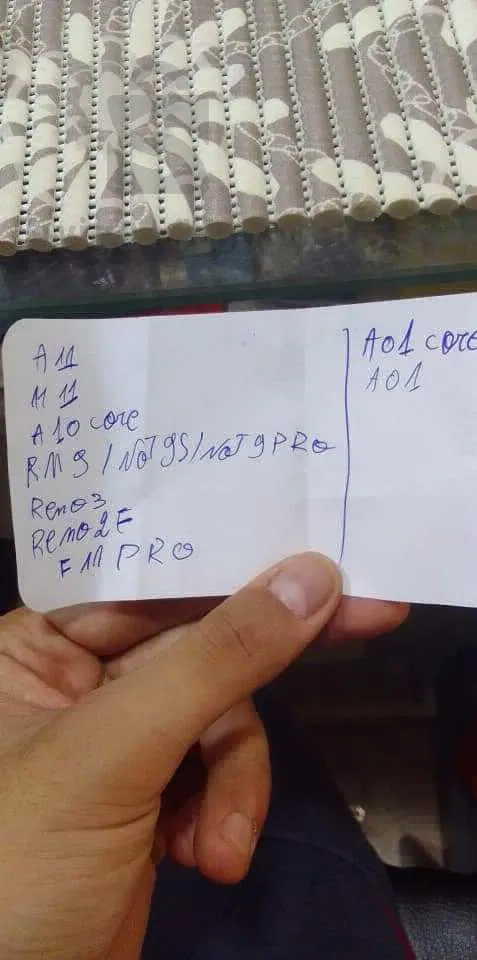 A11
M11
A10 core
RM9 / NOT 9S / NOT 9 PRO
Reno3
Reno2F
F11 PRO
A01 core
A01